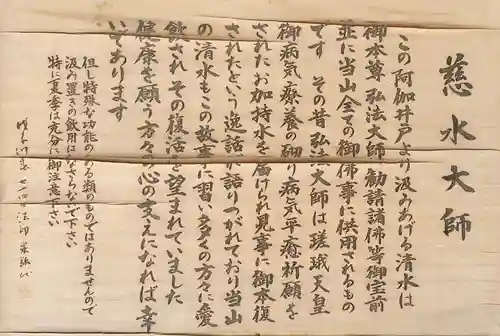 慈水大師
この阿伽井戸より汲みあげる清水は
御本尊弘法大師、勧請諸佛等御宝前
並に当山全ての御佛事に供用されるもの
です その昔弘法大師は嵯峨天皇
御病気療養の砌り病気平癒祈願を
されたお加持水を届けられ見事に御本復
されたという逸話が語りつがれており当山
の清水もこの故事に習い多くの方々に愛
飲され その復活を望まれていました
健康を願う方々の心の支えになれば幸
いであります
但し特殊な功能のある類のものではありませんので
汲み置きの飲用はなさらないで下さい
特に夏季は充分に御注意下さい